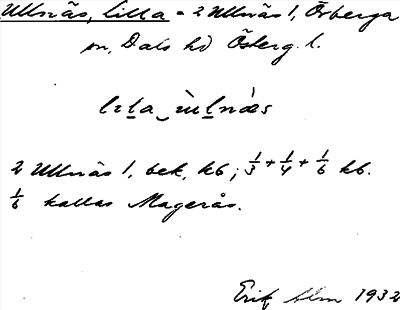 Ullnäs, Lilla = 2 Ullnäs 1, Örberga
sn, Dals hd Österg. l.
2 Ullnäs 1, bek, hb; 1/3 + 1/4 + 1/6 hb.
1/6 kallas Magerås.
Erik Alm 1932